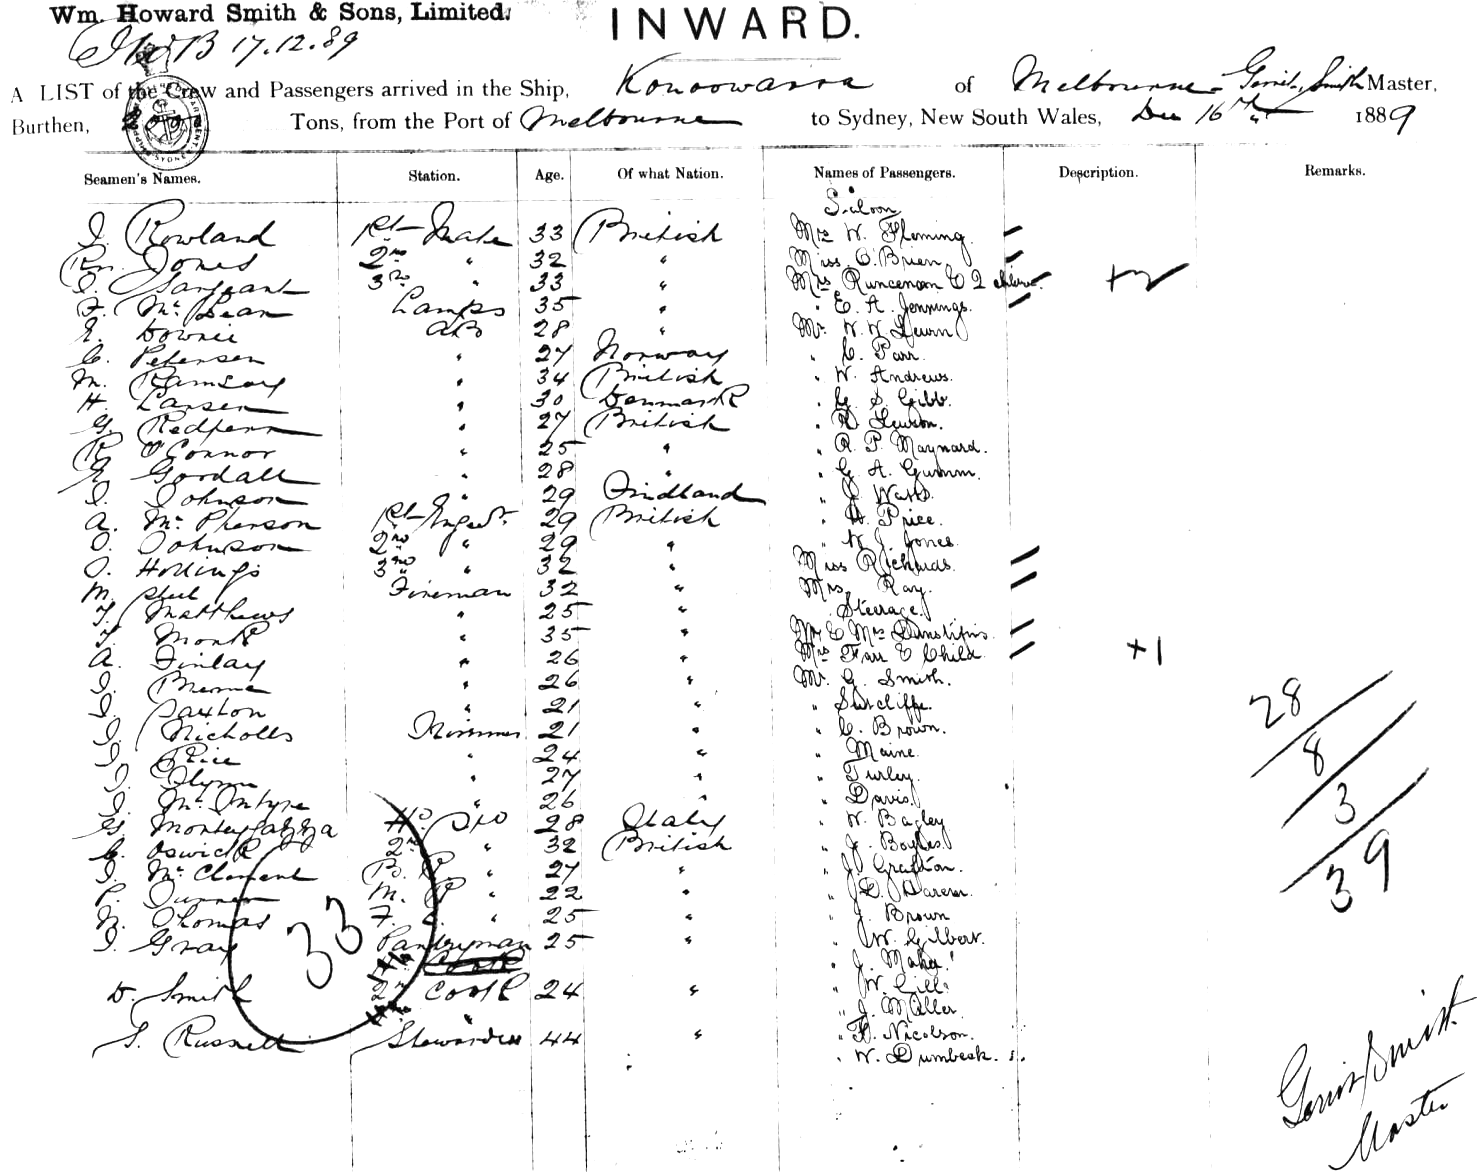 Wm. Howard Smith & Sons, Limited.
INWARD.
17.12.89
A LIST of the Crew and Passengers arrived in the Ship, Konoowarra of Melbourne Smith Master,
Burthen, Tons, from the Port of Melbourne to Sydney, New South Wales, Dec 16th 1889
Seamen's Names. Station. Age. Of what Nation. Names of Passengers. Description. Remarks.
Saloon
J. Rowland 1st Mate 33 British Mrs W. Fleming
Jones 2nd " 32 " Miss O'Brien
Sargeant 3rd " 33 " Mrs Runceman & 2 +2
F. McLean Lamps 35 " " E. A. Jennings.
Downie AB 28 " Mr W. W.
C. Petersen " 27 Norway " C. Parr.
M. Ramsay " 34 British " W. Andrews.
H. Larsen " 30 Denmark " G. S. Gibb.
G. Redfern " 27 British "
R. O'Connor " 25 " " R. P. Maynard.
Goodall " 28 " " G. A.
J. Johnson " 29 Findland " J. Watts.
A. McPherson 1st 29 British " H. Price.
J. Johnson 2nd " 29 " " W. J. Jones.
J. Hollings 3rd " 32 " Miss Richards.
M. Fireman 32 " Mrs Ray.
T. Matthews " 25 " Steerage.
T. Monk " 35 " Mr & Mrs
A. Finlay " 26 " Mrs Farr & Child +1
J. " 26 " Mr. G. Smith.
J. Saxton " 21 " " Sutcliffe.
J. Nicholls Trimmer 21 " " C. Brown.
J. Price " 24 " " Maine.
J. Flynn " 27 " " Turley.
J. McIntyre " 26 " " Davis.
G. 28 Italy " W. Bagley
C. Oswick 2nd " 32 British " J. Boyles.
J. McClement B. R " 27 " " J. Grafton.
P. Turner M. R " 22 " " J. D.
N. Thomas F. C. " 25 " " J. Brown
J. Gray Pantryman 25 " " W. Gilbert.
" J. Maher
D. Smith 2nd Cook 24 " " W. Gill
" J. Miller
S. Russell Stewardess 44 " " F. Nicolson.
" W. Dumbeck.
33
28
8
3
39
Smith
Master